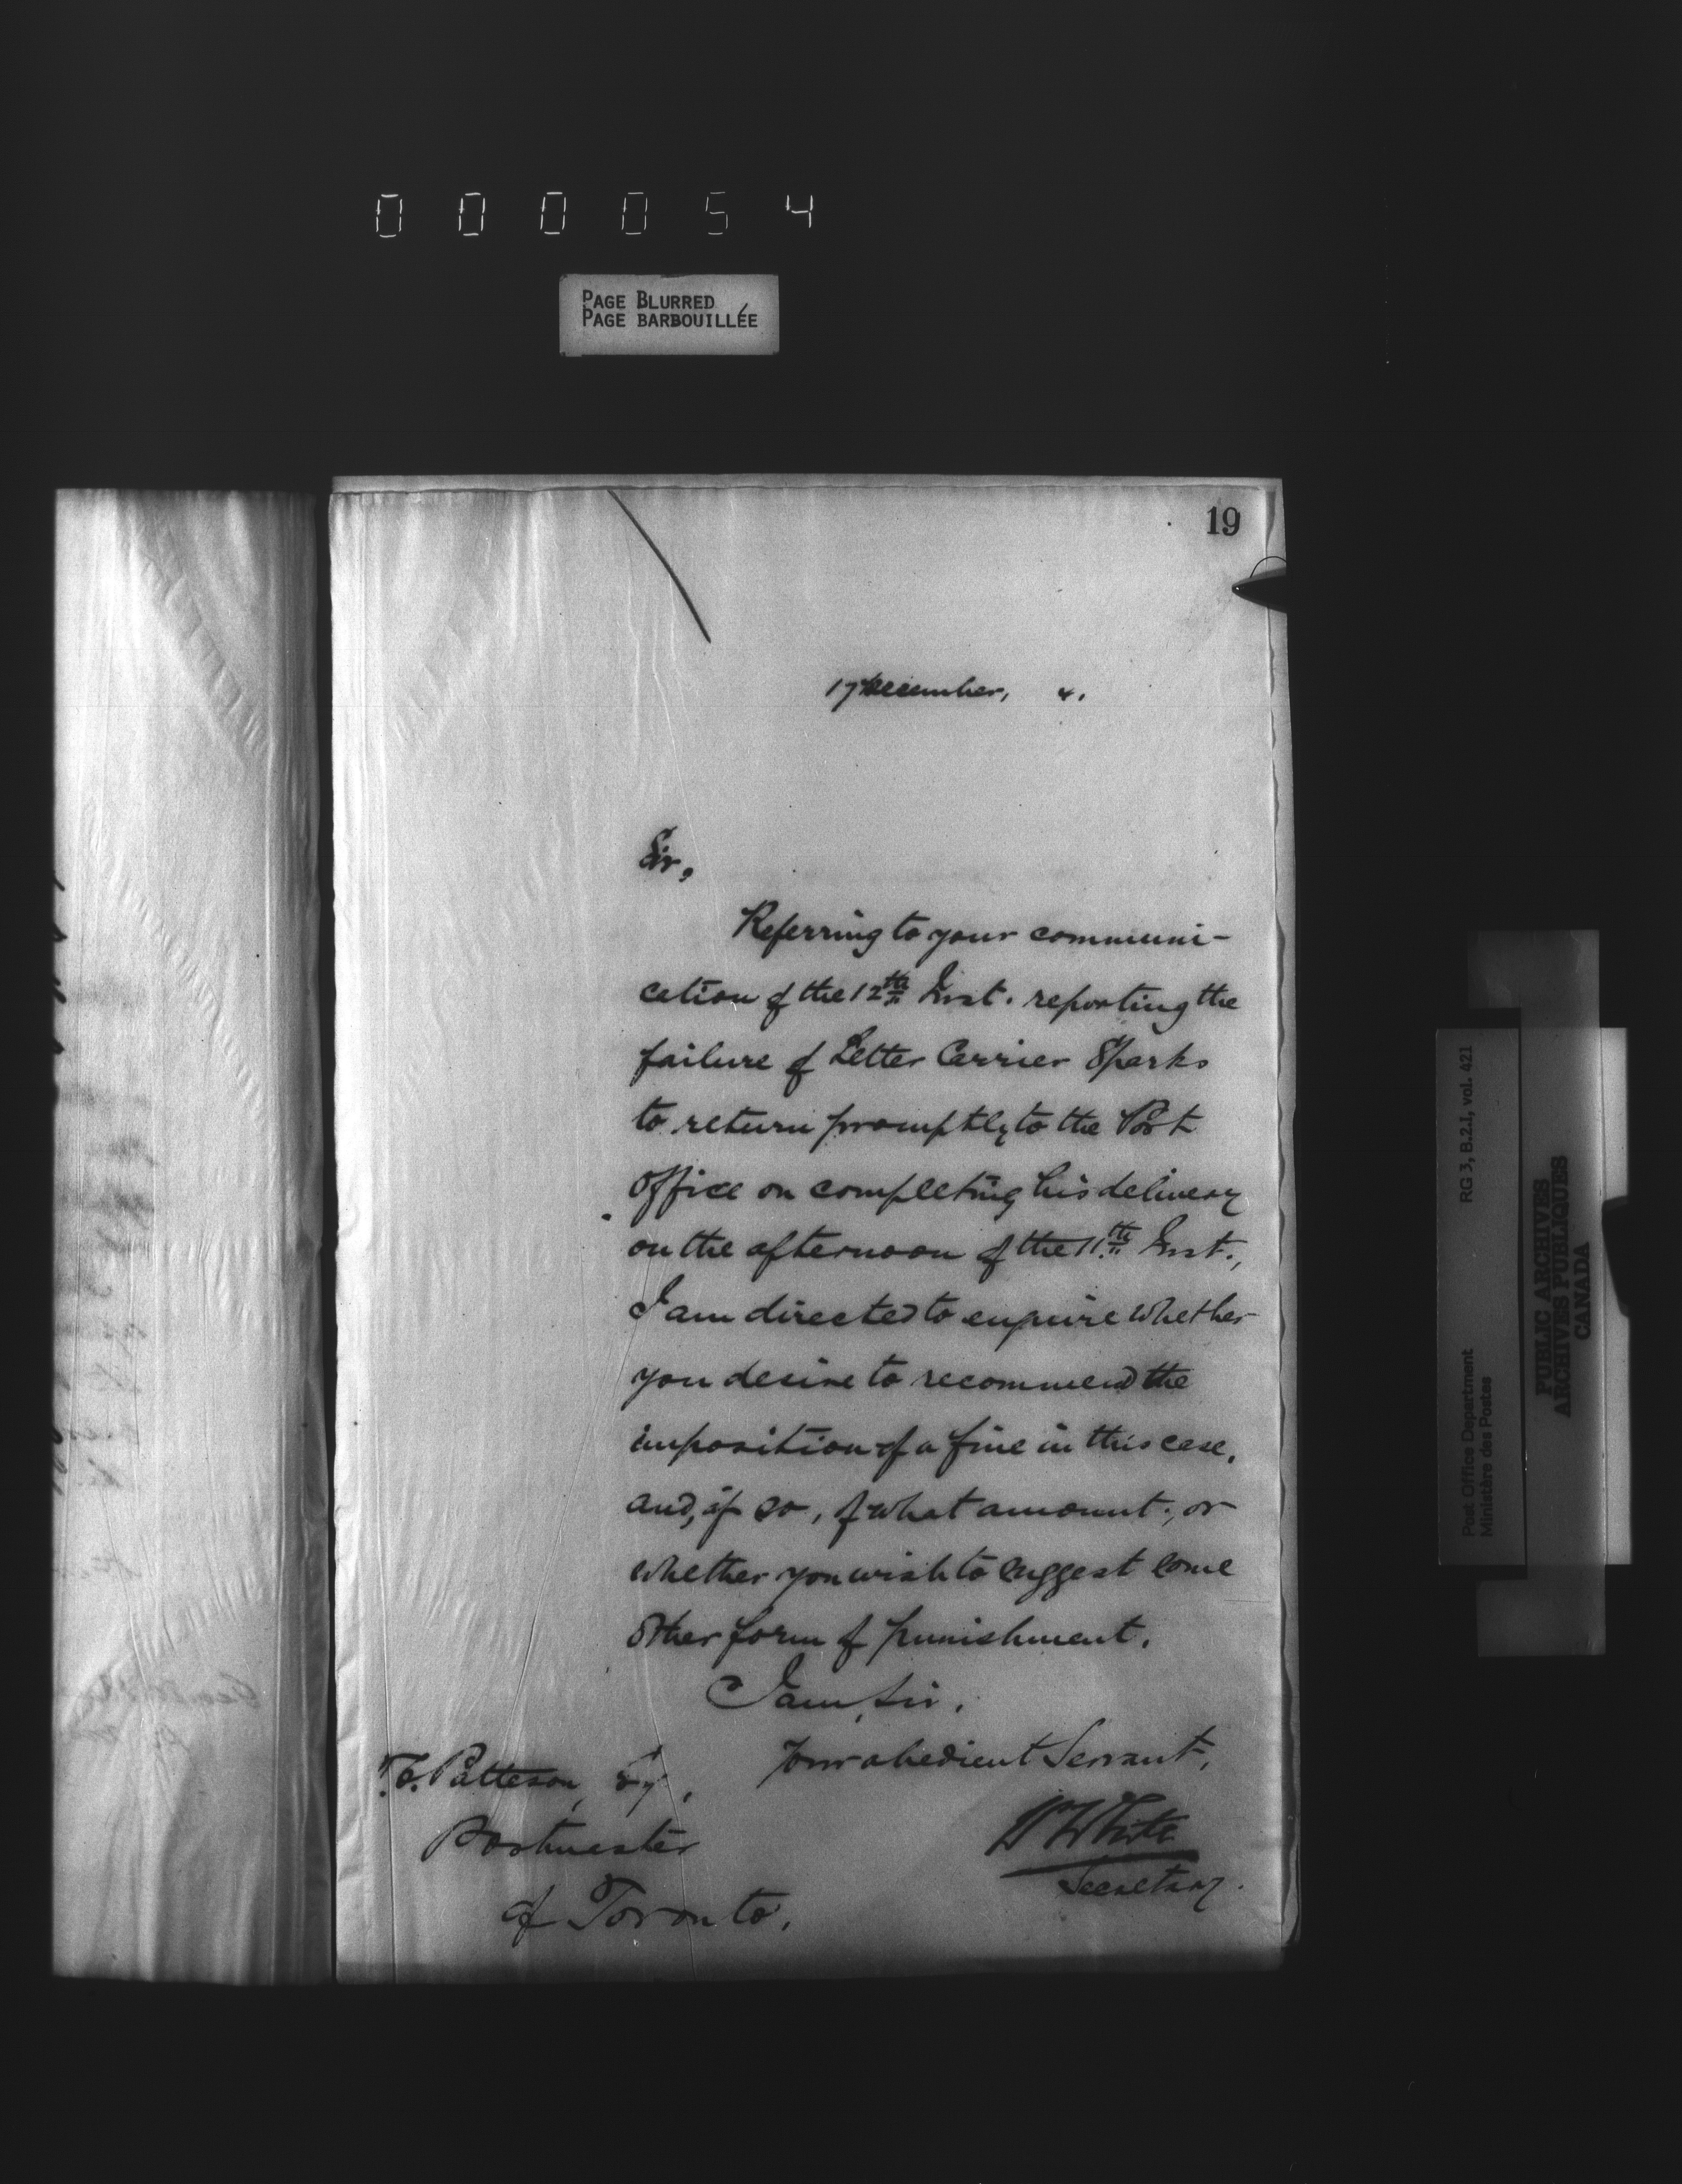 000054
PAGE BLURRED
PAGE BARBOUILLÉE
19
17 December, 4.
Sir,
Referring to your communi-
cation of the 12th Inst. reporting the
failure of Letter Carrier Sparks
to return promptly to the Post
Office on completing his delivery
on the afternoon of the 11th Inst.,
I am directed to enquire whether
you desire to recommend the
imposition of a fine in this case,
and, if so, of what amount; or
whether you wish to suggest some
other form of punishment.
I am, Sir,
Your obedient Servant,
W White
Secretary.
T. C. Patteson, Esq.,
Postmaster
of Toronto.
Post Office Department RG 3, B.2.I, vol. 421
Ministère des Postes
PUBLIC ARCHIVES
ARCHIVES PUBLIQUES
CANADA